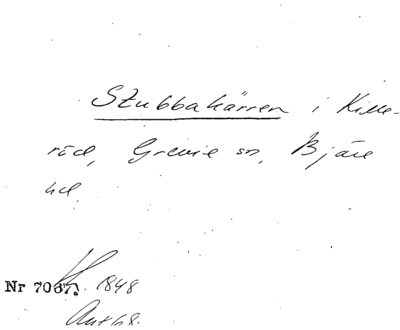 Stubbakärren i Kille-
röd, Grevie sn, Bjäre
hd.
Nr 7067. 1848